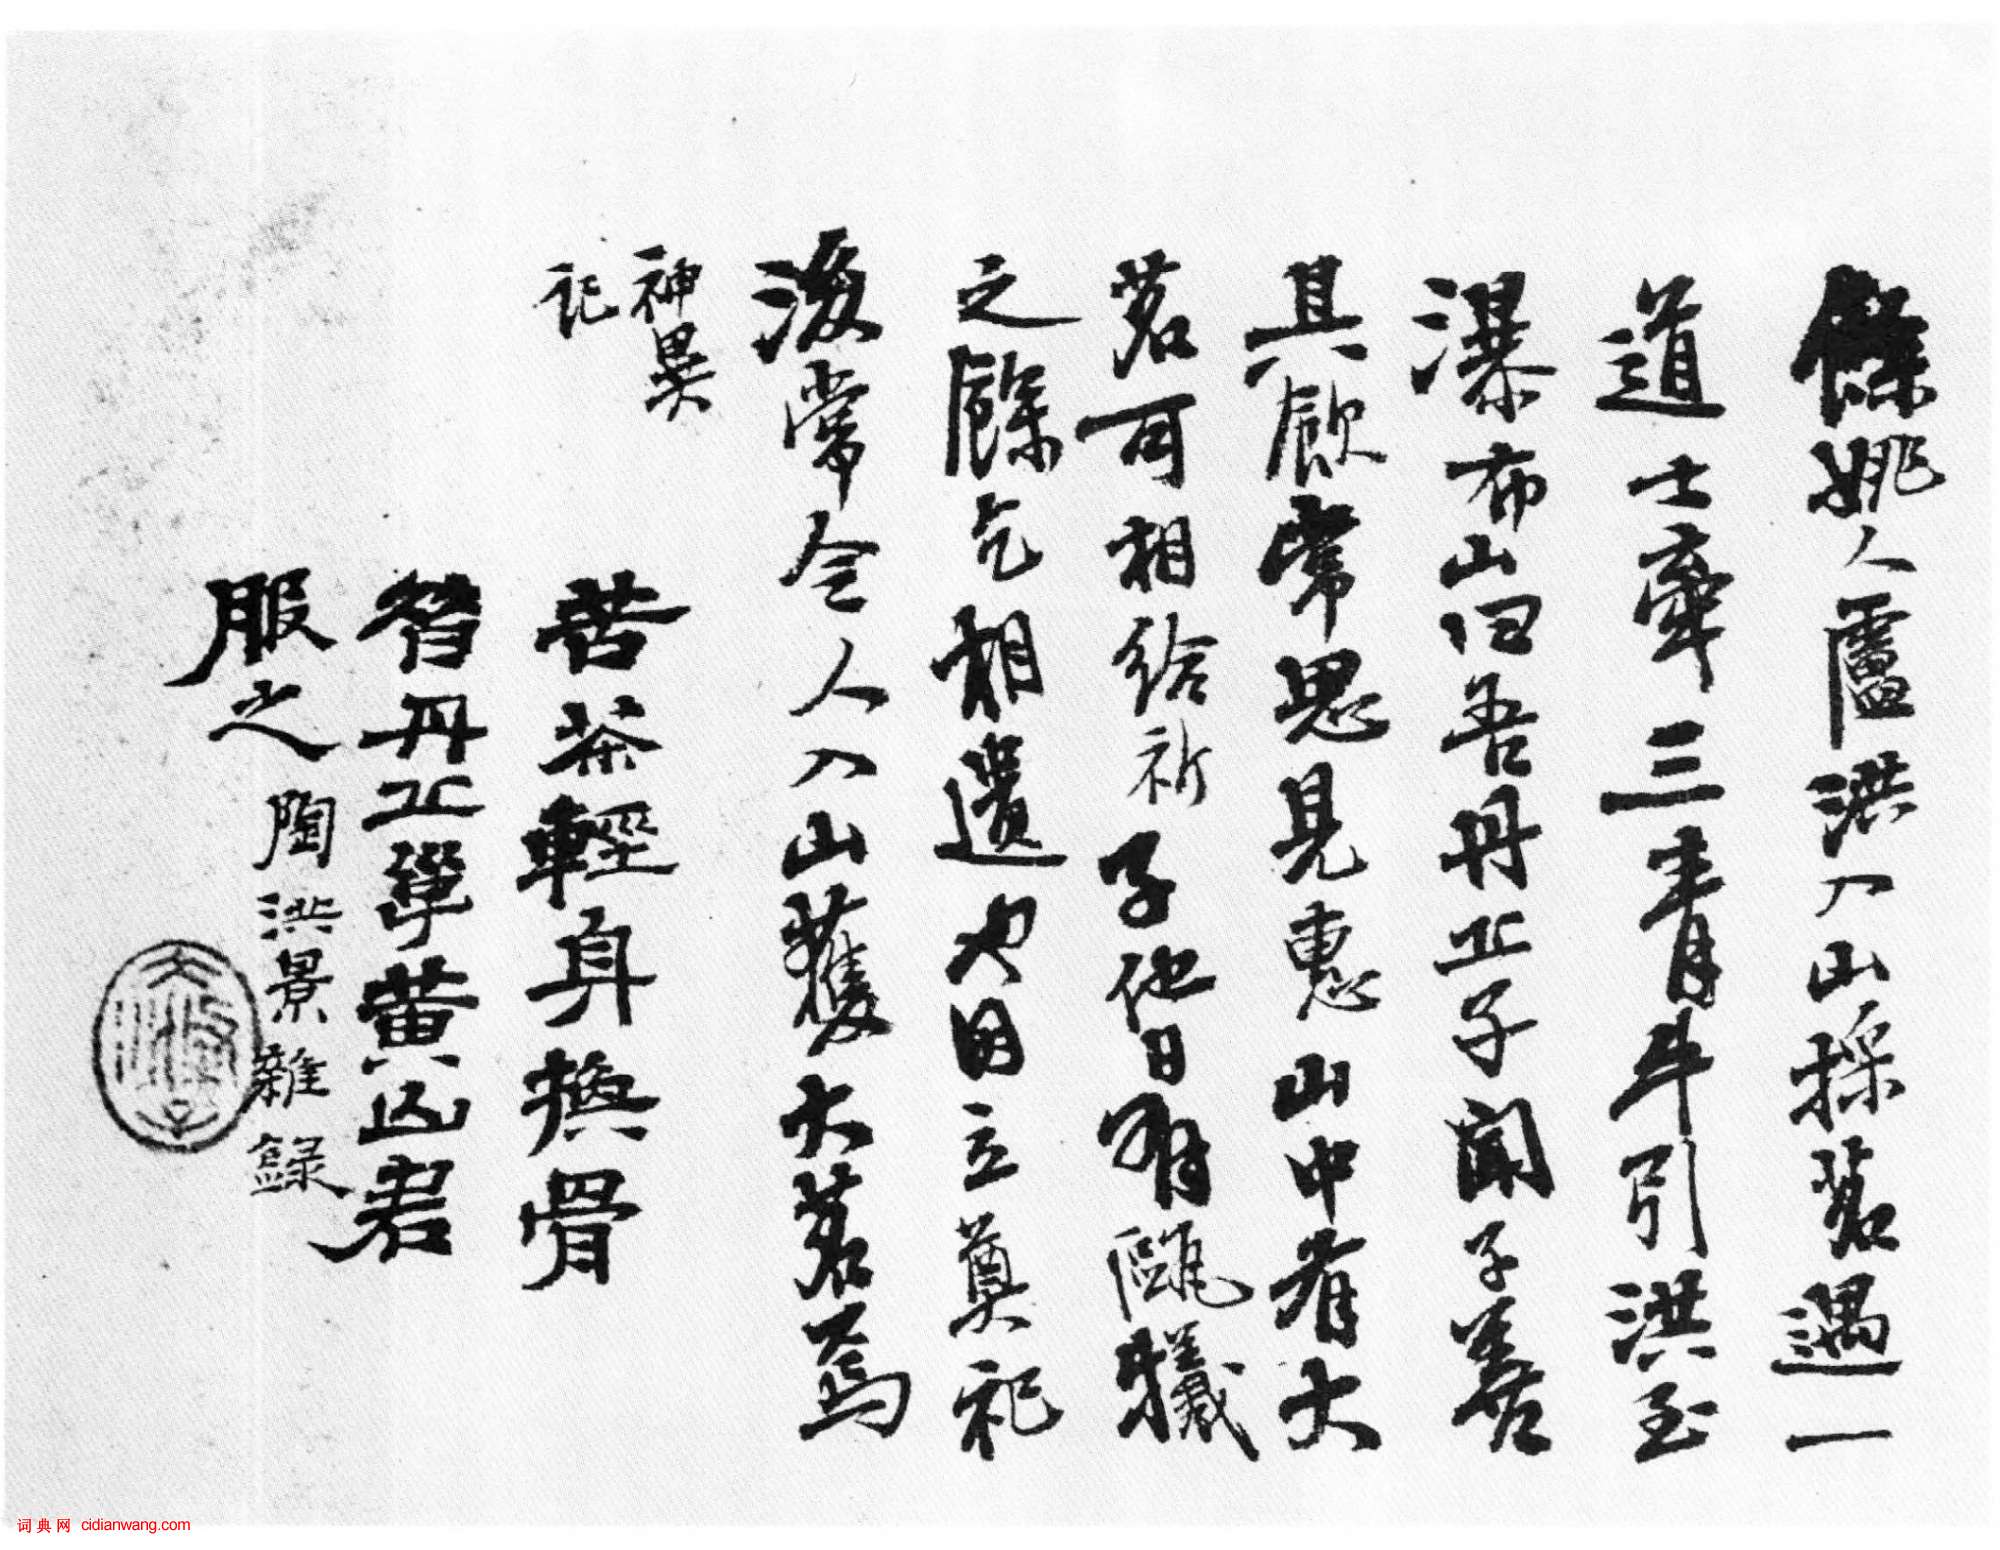 餘姚人盧洪入山採茗遇一
道士牽三青牛引洪至
瀑布山曰吾丹丘子聞子善
具飲常思見惠山中有大
茗可相給祈子他日有甌犧
之餘乞相遺也因立奠祀
後常令人入山獲大茗焉
神異
記
苦茶輕身換骨
昔丹丘黃山君
服之陶洪景雜錄
词典网 cidianwang.com